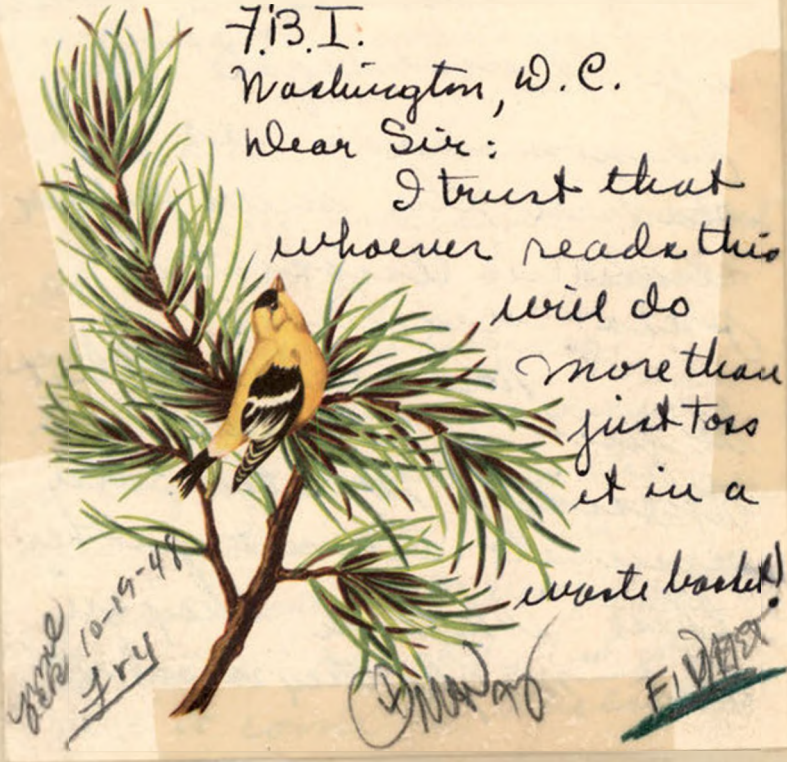 F.B.I.
Washington, D.C.
Dear Sir:
I trust that
whoever reads this
will do
more than
just toss
it in a
waste basket!
10-19-48